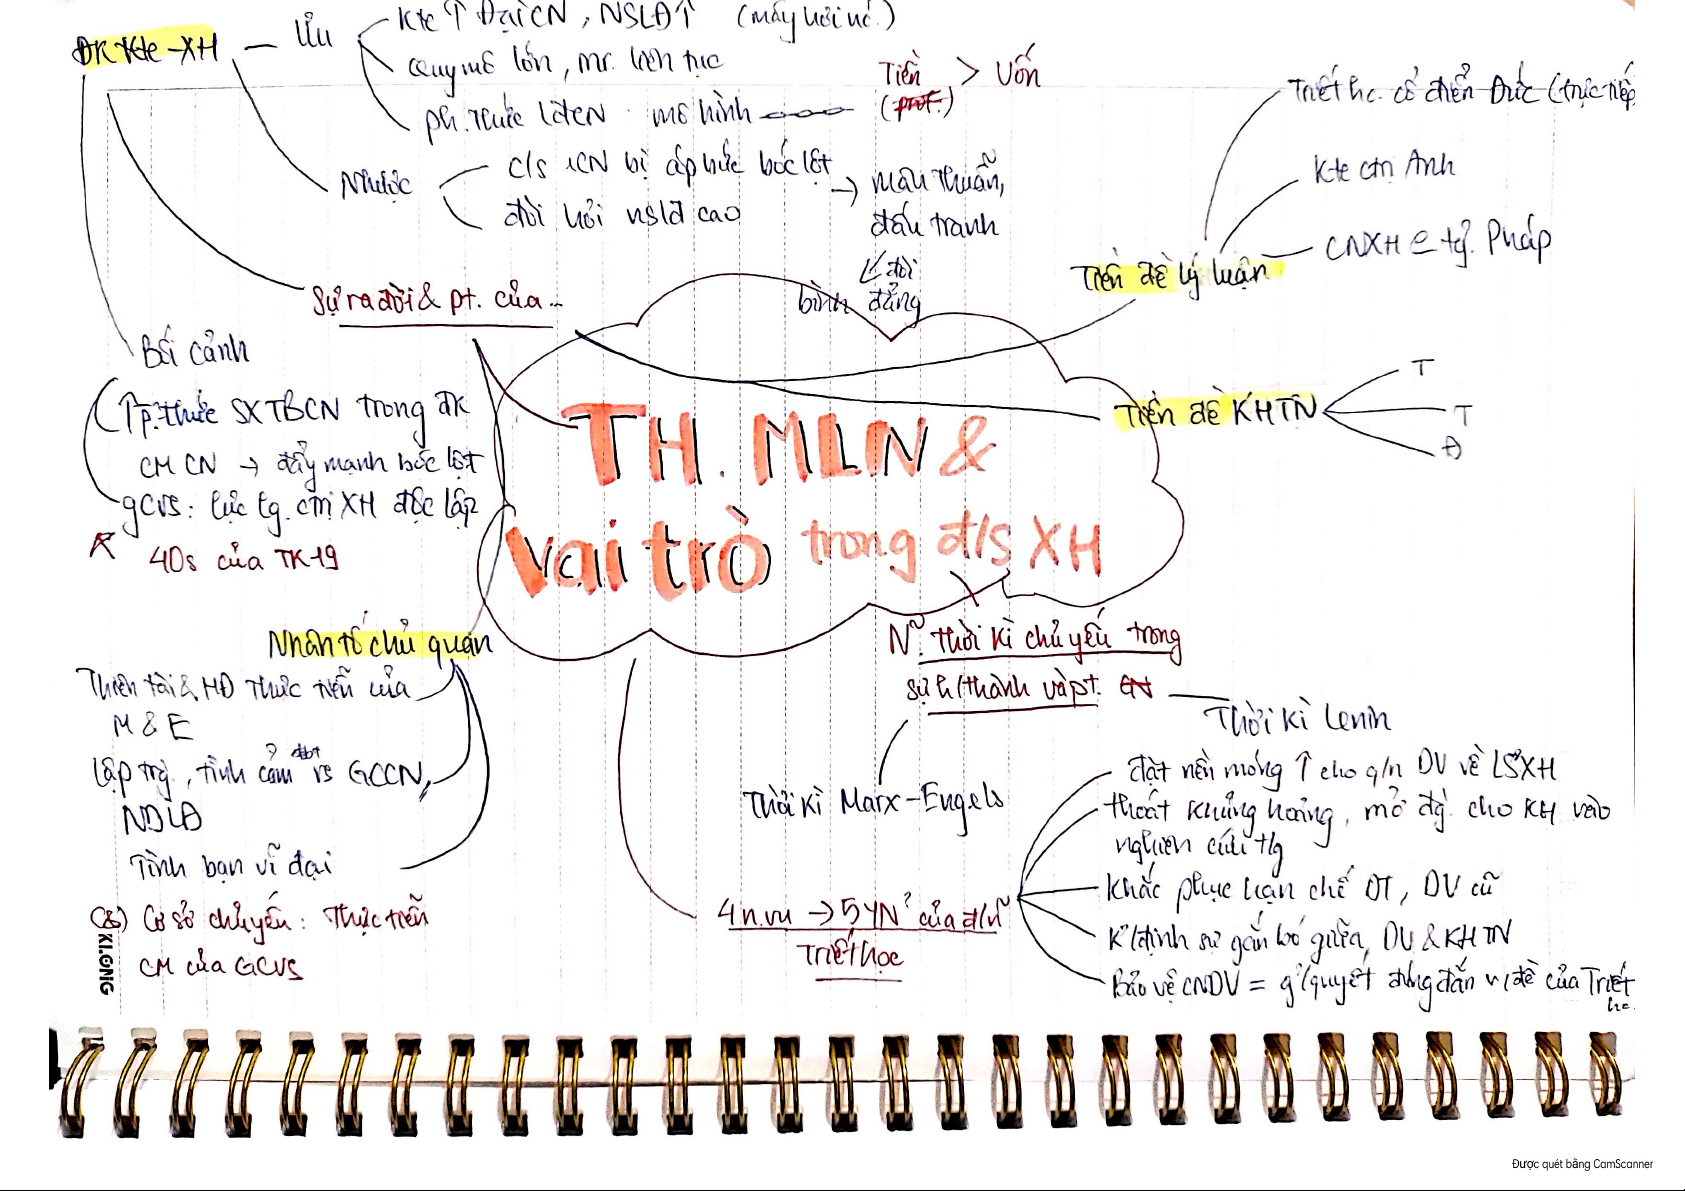 ĐK Kte-XH
Ưu
Kte ↑ Đại CN, NSLĐ↑ (máy hơi nc.)
Quy mô lớn, mr. liên tục
mô hình
Tiền > Vốn
Nhược
c/s CN bị áp bức bóc lột
đòi hỏi nslđ cao
→ mâu thuẫn,
đấu tranh
đòi
bình đẳng
Sự ra đời & pt. của ...
Tiền đề lý luận
Triết hc. cổ điển Đức (trực tiếp
Kte ctrị Anh
CNXH Pháp
Tiền đề KHTN
T
T
Đ
Bối cảnh
↑ p.thức SXTBCN trong đk
CMCN → đẩy mạnh bóc lột
gCVS: lực lg. ctrị XH độc lập
40s của TK-19
TH. MLN &
vai trò trong đ/s XH
Nhân tố chủ quan
Thiên tài & HĐ thực tiễn của
M & E
Lập trg, tình cảm vs GCCN,
NDLĐ
Tình bạn vĩ đại
Cơ sở chủ yếu: Thực tiễn
CM của GCVS
KLONG
N~ thời kì chủ yếu trong
sự h/thành và pt.
Thời kì Lenin
Thời kì Marx-Engels
4 n.vụ → 5 YN² của đ/n~
Triết học
đặt nền móng ↑ cho q/n DV về LSXH
thoát khủng hoảng, mở đg. cho KH vào
nghiên cứu tg
Khắc phục hạn chế DT, DV cũ
K/định sự gắn bó giữa DV & KHTN
Bảo vệ CNDV = g/quyết đúng đắn v/đề của Triết
hc.
Được quét bằng CamScanner